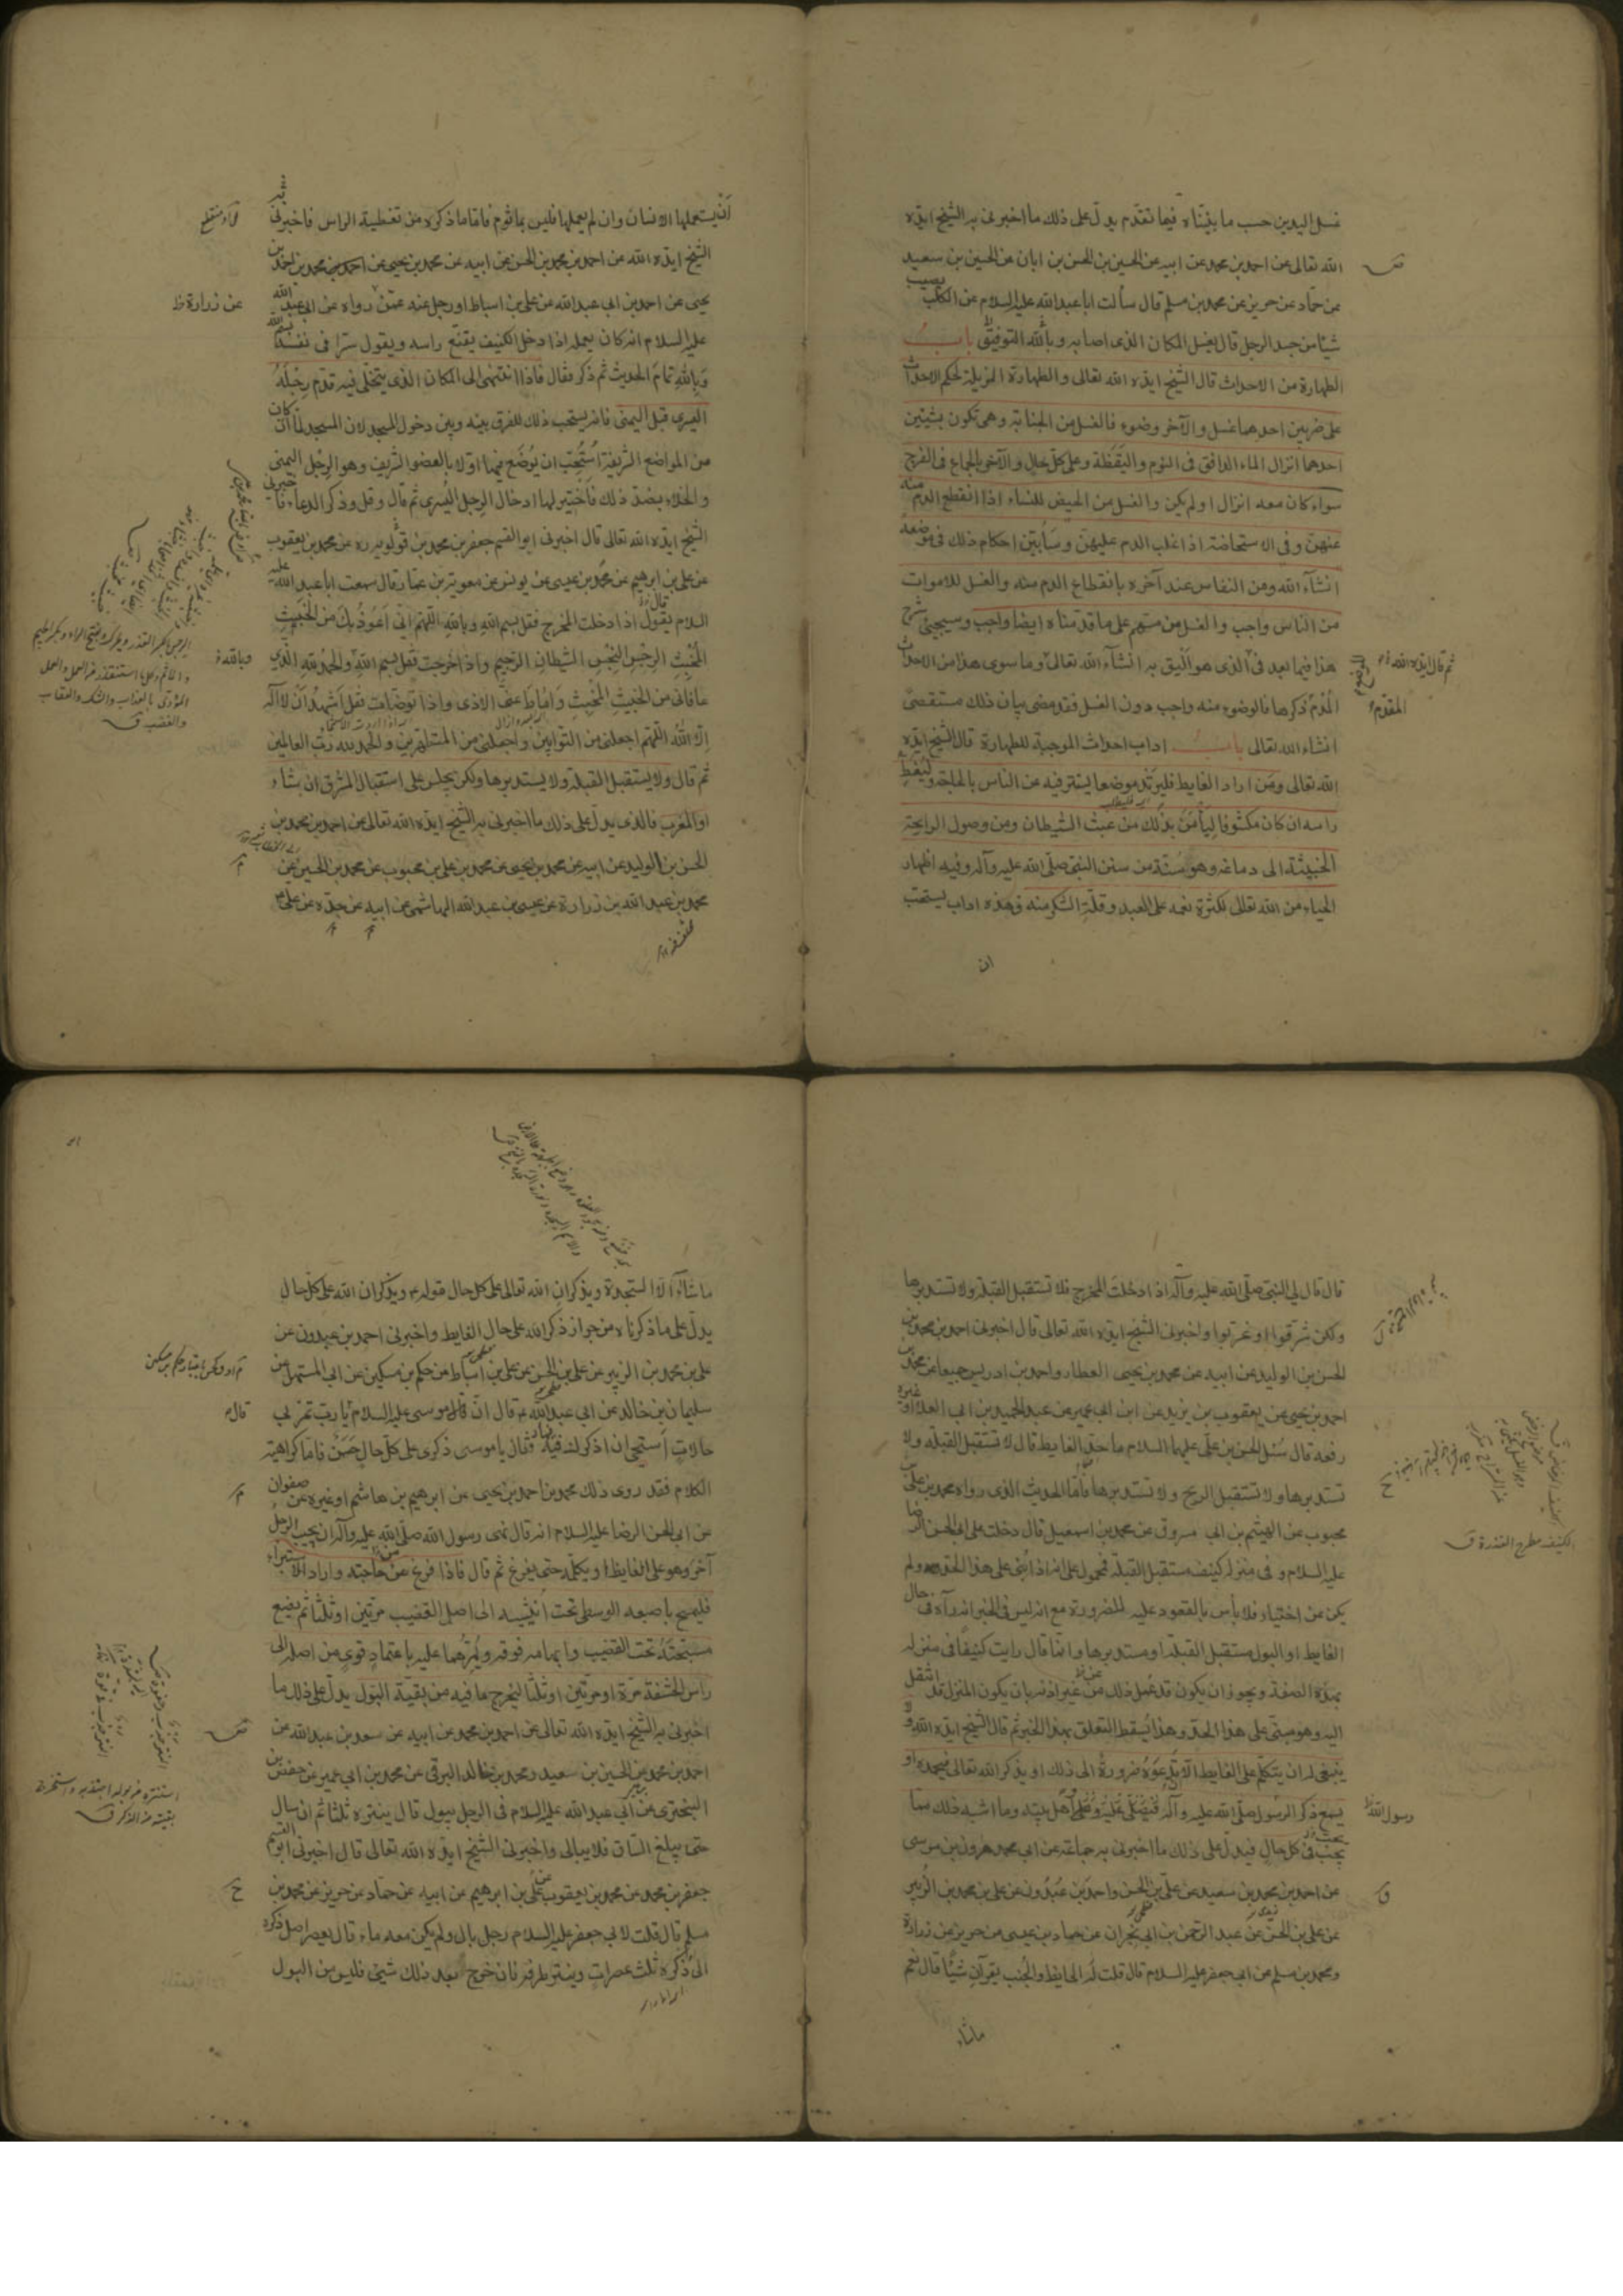 غسل اليدين حسب ما بيّنّاه فيما تقدّم يدلّ على ذلك ما اخبرنى به الشيخ ايّده
الله تعالى عن احمد بن محمد عن ابيه عن الحسين بن الحسن بن ابان عن الحسين بن سعيد
عن حمّاد عن حريز عن محمد بن مسلم قال سألت ابا عبد الله عليه السلام عن الكلب يصيب
شيئا من جسد الرجل قال يغسل المكان الذى اصابه وبالله التوفيق باب
الطهارة من الاحداث قال الشيخ ايّده الله تعالى والطهارة المزيلة لحكم الاحداث
على ضربين احدهما غسل والآخر وضوء فالغسل من الجنابة وهى تكون بشيئين
احدهما انزال الماء الدافق فى النوم واليقظة وعلى كلّ حال والآخر بالجماع فى الفرج
سواء كان معه انزال او لم يكن والغسل من الحيض للنساء اذا انقطع الدم منه
عنهنّ وفى الاستحاضة اذا غلب الدم عليهنّ وسأبيّن احكام ذلك فى موضعه
انشآء الله ومن النفاس عند آخره بانقطاع الدم منه والغسل للاموات
من الناس واجب والغسل من مسّهم على ما قدّمناه ايضا واجب وسيجيئ شرح
هذا فيما بعد فى الذى هو أليق به انشآء الله تعالى وما سوى هذا من الاحداث
المقدّم ذكرها فالوضوء منه واجب دون الغسل فقد مضى بيان ذلك مستقصىً
انشاء الله تعالى باب اداب احداث الموجبة للطهارة قال الشيخ ايّده
الله تعالى ومن اراد الغايط فليرتد موضعا يستتر فيه عن الناس بالحاجة وليغطّ
راسه ان كان مكشوفا ليأمن بذلك من عبث الشيطان ومن وصول الرايحة
الخبيثة الى دماغه وهو سنّة من سنن النبى صلّى الله عليه وآله وفيه اظهار
الحياء من الله تعالى لكثرة نعمه على العبد وقلّة الشكر منه فهذه اداب يستحبّ
ان
ثم قال ايده الله
المقدم
أن يستعملها الانسان وان لم يعملها فليس بمأثوم فامّا ما ذكره من تغطية الراس فاخبرنى
الشيخ ايّده الله عن احمد بن محمد بن الحسن عن ابيه عن محمد بن يحيى عن احمد بن محمد بن احمد بن
يحيى عن احمد بن ابى عبد الله عن على بن اسباط او رجل عنه عمّن رواه عن ابى عبد الله
عليه السلام انه كان يعمله اذا دخل الكنيف يقنّع راسه ويقول سرّا فى نفسه بسم الله
وبالله تمام الحديث ثم ذكر فقال فاذا انتهى الى المكان الذى يتخلّى فيه قدّم رجله
اليسرى قبل اليمنى فانه يستحب ذلك للفرق بينه وبين دخول المسجد لان المسجد لما كان
من المواضع الشريفة استحبّ ان يوضع فيها اوّلا بالعضو الشريف وهو الرجل اليمنى
والخلاء بضدّ ذلك فاختير لها ادخال الرجل اليسرى ثم قال وقل وذكر الدعاء فاخبرنى
الشيخ ايّده الله تعالى قال اخبرنى ابو القسم جعفر بن محمد بن قولويه ره عن محمد بن يعقوب
عن على بن ابرهيم عن محمد بن عيسى عن يونس عن معوية بن عمّار قال سمعت ابا عبد الله عليه
السلام يقول اذا دخلت المخرج فقل بسم الله وبالله اللهم انّى أعوذ بك من الخبيث
المخبث الرجس النجس الشيطان الرجيم واذا خرجت فقل بسم الله والحمد لله الذى
عافانى من الخبيث المخبث واماط عنّى الاذى واذا توضّأت فقل أشهد أن لا اله
الّا الله اللهم اجعلنى من التوابين واجعلنى من المتطهرين والحمد لله ربّ العالمين
ثم قال ولا يستقبل القبلة ولا يستدبرها ولكن يجلس على استقبال المشرق ان شاء
او المغرب فالذى يدلّ على ذلك ما اخبرنى به الشيخ ايّده الله تعالى عن احمد بن محمد بن
الحسن بن الوليد عن ابيه عن محمد بن يحيى عن محمد بن على بن محبوب عن محمد بن الحسين عن
محمد بن عبد الله بن زرارة عن عيسى بن عبد الله الهاشمى عن ابيه عن جدّه عن على
عن زرارة ظ
وبالله
والغضب ق
قال قال لى النبى صلّى الله عليه وآله اذا دخلت المخرج فلا تستقبل القبلة ولا تستدبرها
ولكن شرّقوا او غرّبوا واخبرنى الشيخ ايّده الله تعالى قال اخبرنى احمد بن محمد بن
الحسن بن الوليد عن ابيه عن محمد بن يحيى العطار واحمد بن ادريس جميعا عن محمد بن
احمد بن يحيى عن يعقوب بن يزيد عن ابن ابى عمير عن عبد الحميد بن ابى العلا او غيره
رفعه قال سئل الحسن بن علىّ عليهما السلام ما حدّ الغايط قال لا تستقبل القبلة ولا
تستدبرها ولا تستقبل الريح ولا تستدبرها فامّا الحديث الذى رواه محمد بن علىّ بن
محبوب عن الهيثم بن ابى مسروق عن محمد بن اسمعيل قال دخلت على ابى الحسن الرضا
عليه السلام وفى منزله كنيف مستقبل القبلة فمحمول على انه اذا بنى على هذا الحد ولم
يكن من اختياره فلا بأس بالقعود عليه للضرورة مع انه ليس فى الخبر انه رآه فى حال
الغايط او البول مستقبل القبلة او مستدبرها وانّما قال رايت كنيفًا فى منزله
بهذه الصفة ويجوز ان يكون قد عمل ذلك من غير اذنه بان يكون المنزل قد انتقل
اليه وهو مبنى على هذا الحدّ وهذا يسقط التعلق بهذا الخبر ثم قال الشيخ ايّده الله ولا
ينبغى له ان يتكلّم على الغايط الّا ان تدعوه ضرورة الى ذلك او يذكر الله تعالى فيحمده او
يسمع ذكر الرسول صلّى الله عليه وآله فيصلّى عليه وعلى اهل بيته وما اشبه ذلك ممّا
يجب فى كل حال فيدلّ على ذلك ما اخبرنى به جماعة عن ابى محمد هرون بن موسى
عن احمد بن محمد بن سعيد عن على بن الحسن واحمد بن عبدون عن على بن محمد بن الزبير
عن على بن الحسن عن عبد الرحمن بن ابى نجران عن حماد بن عيسى عن حريز عن زرارة
ومحمد بن مسلم عن ابى جعفر عليه السلام قال قلت له الحايض والجنب يقرآن شيئًا قال نعم
ماشاء
الكنيف
رسول الله ظ
ما شاءا الّا السجدة ويذكران الله تعالى على كل حال قوله ع ويذكران الله على كلّ حال
يدلّ على ما ذكرناه من جواز ذكر الله على حال الغايط واخبرنى احمد بن عبدون عن
على بن محمد بن الزبير عن على بن الحسن عن على بن اسباط عن حكم بن مسكين عن ابى المستهل عن
سليمان بن خالد عن ابى عبد الله ع قال انّ موسى عليه السلام يا ربّ تمرّ بى
حالات أستحيى ان اذكرك فيها فقال يا موسى ذكرى على كلّ حال حسن فامّا كراهية
الكلام فقد روى ذلك محمد بن احمد بن يحيى عن ابرهيم بن هاشم او غيره عن صفوان
عن ابى الحسن الرضا عليه السلام انه قال نهى رسول الله صلّى الله عليه وآله ان يجيب الرجل
آخر وهو على الغايط او يكلّمه حتى يفرغ ثم قال فاذا فرغ من حاجته واراد الاستبراء
فليمسح باصبعه الوسطى تحت أنثييه الى اصل القضيب مرّتين او ثلثا ثم يضع
مسبّحته تحت القضيب وابهامه فوقه ويمرّهما عليه باعتماد قوى من اصله الى
راس الحشفة مرّة او مرتين او ثلثا ليخرج ما فيه من بقيّة البول يدلّ على ذلك ما
اخبرنى به الشيخ ايّده الله تعالى عن احمد بن محمد عن ابيه عن سعد بن عبد الله عن
احمد بن محمد عن الحسين بن سعيد ومحمد بن خالد البرقى عن محمد بن ابى عمير عن حفص بن
البخترى عن ابى عبد الله عليه السلام فى الرجل يبول قال ينتره ثلثا ثم ان سال
حتى يبلغ الساق فلا يبالى واخبرنى الشيخ ايّده الله تعالى قال اخبرنى ابو القسم
جعفر بن محمد عن محمد بن يعقوب عن على بن ابرهيم عن ابيه عن حمّاد عن حريز عن محمد بن
مسلم قال قلت لابى جعفر عليه السلام رجل بال ولم يكن معه ماء قال يعصر اصل ذكره
الى ذكره ثلث عصرات وينتر طرفه فان خرج بعد ذلك شىء فليس من البول
قال